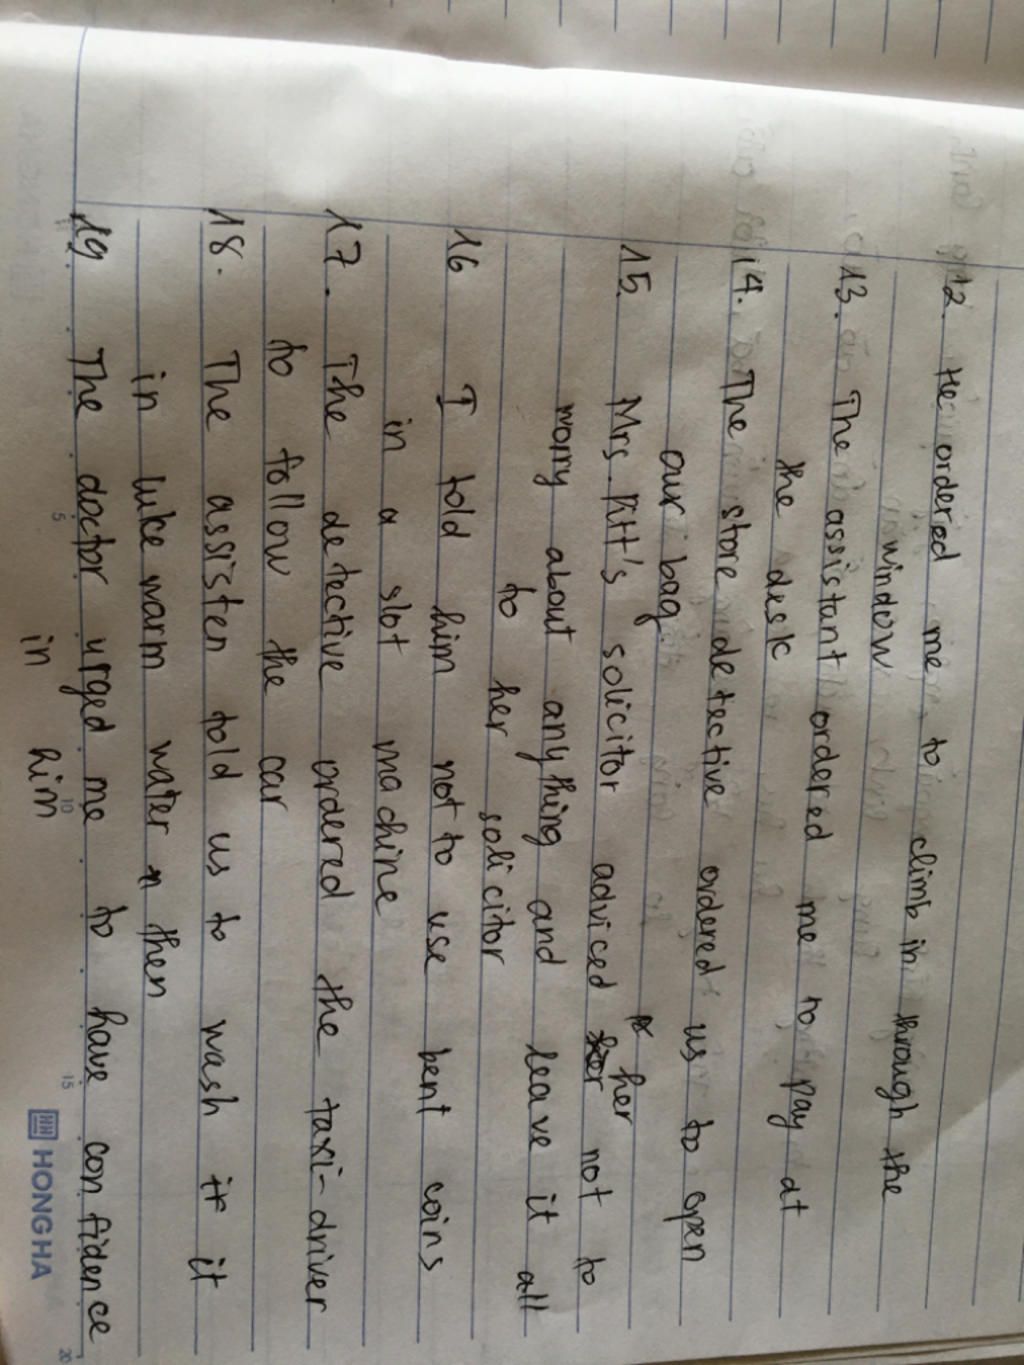 12. He ordered me to climb in through the
window
13. The assistant ordered me to pay at
the desk
14. The store detective ordered us to open
our bag
15. Mrs. Pitt's solicitor adviced her not to
worry about anything and leave it all
to her solicitor
16 I told him not to use bent coins
in a slot machine
17. The detective ordered the taxi-driver
to follow the car
18. The assisten told us to wash it
in luke warm water then
19. The doctor urged me to have confidence
in him
5
10
15
20
HONG HA